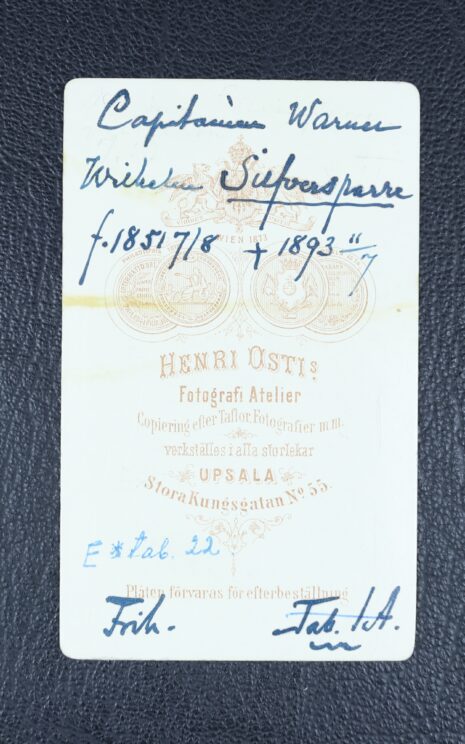 Capitainen Warner
Wilhelm Silfversparre
f. 1851 7/8 + 1893 11/7
WIEN 1873
HENRI OSTIS
Fotografi Atelier
Copiering efter Taflor, Fotografier m.m.
verkställes i alla storlekar
UPSALA
Stora Kungsgatan No 55.
E * Tab. 22
Plåten förvaras för efterbeställning
Frih. Tab. 1A.